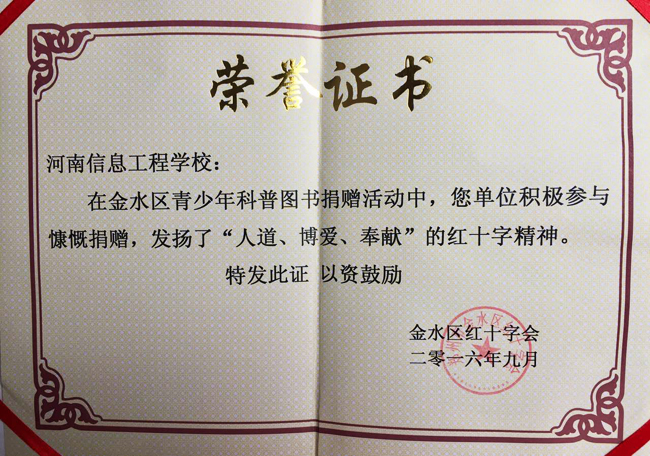 荣誉证书
河南信息工程学校：
在金水区青少年科普图书捐赠活动中，您单位积极参与
慷慨捐赠，发扬了“人道、博爱、奉献”的红十字精神。
特发此证 以资鼓励
金水区红十字会
二零一六年九月